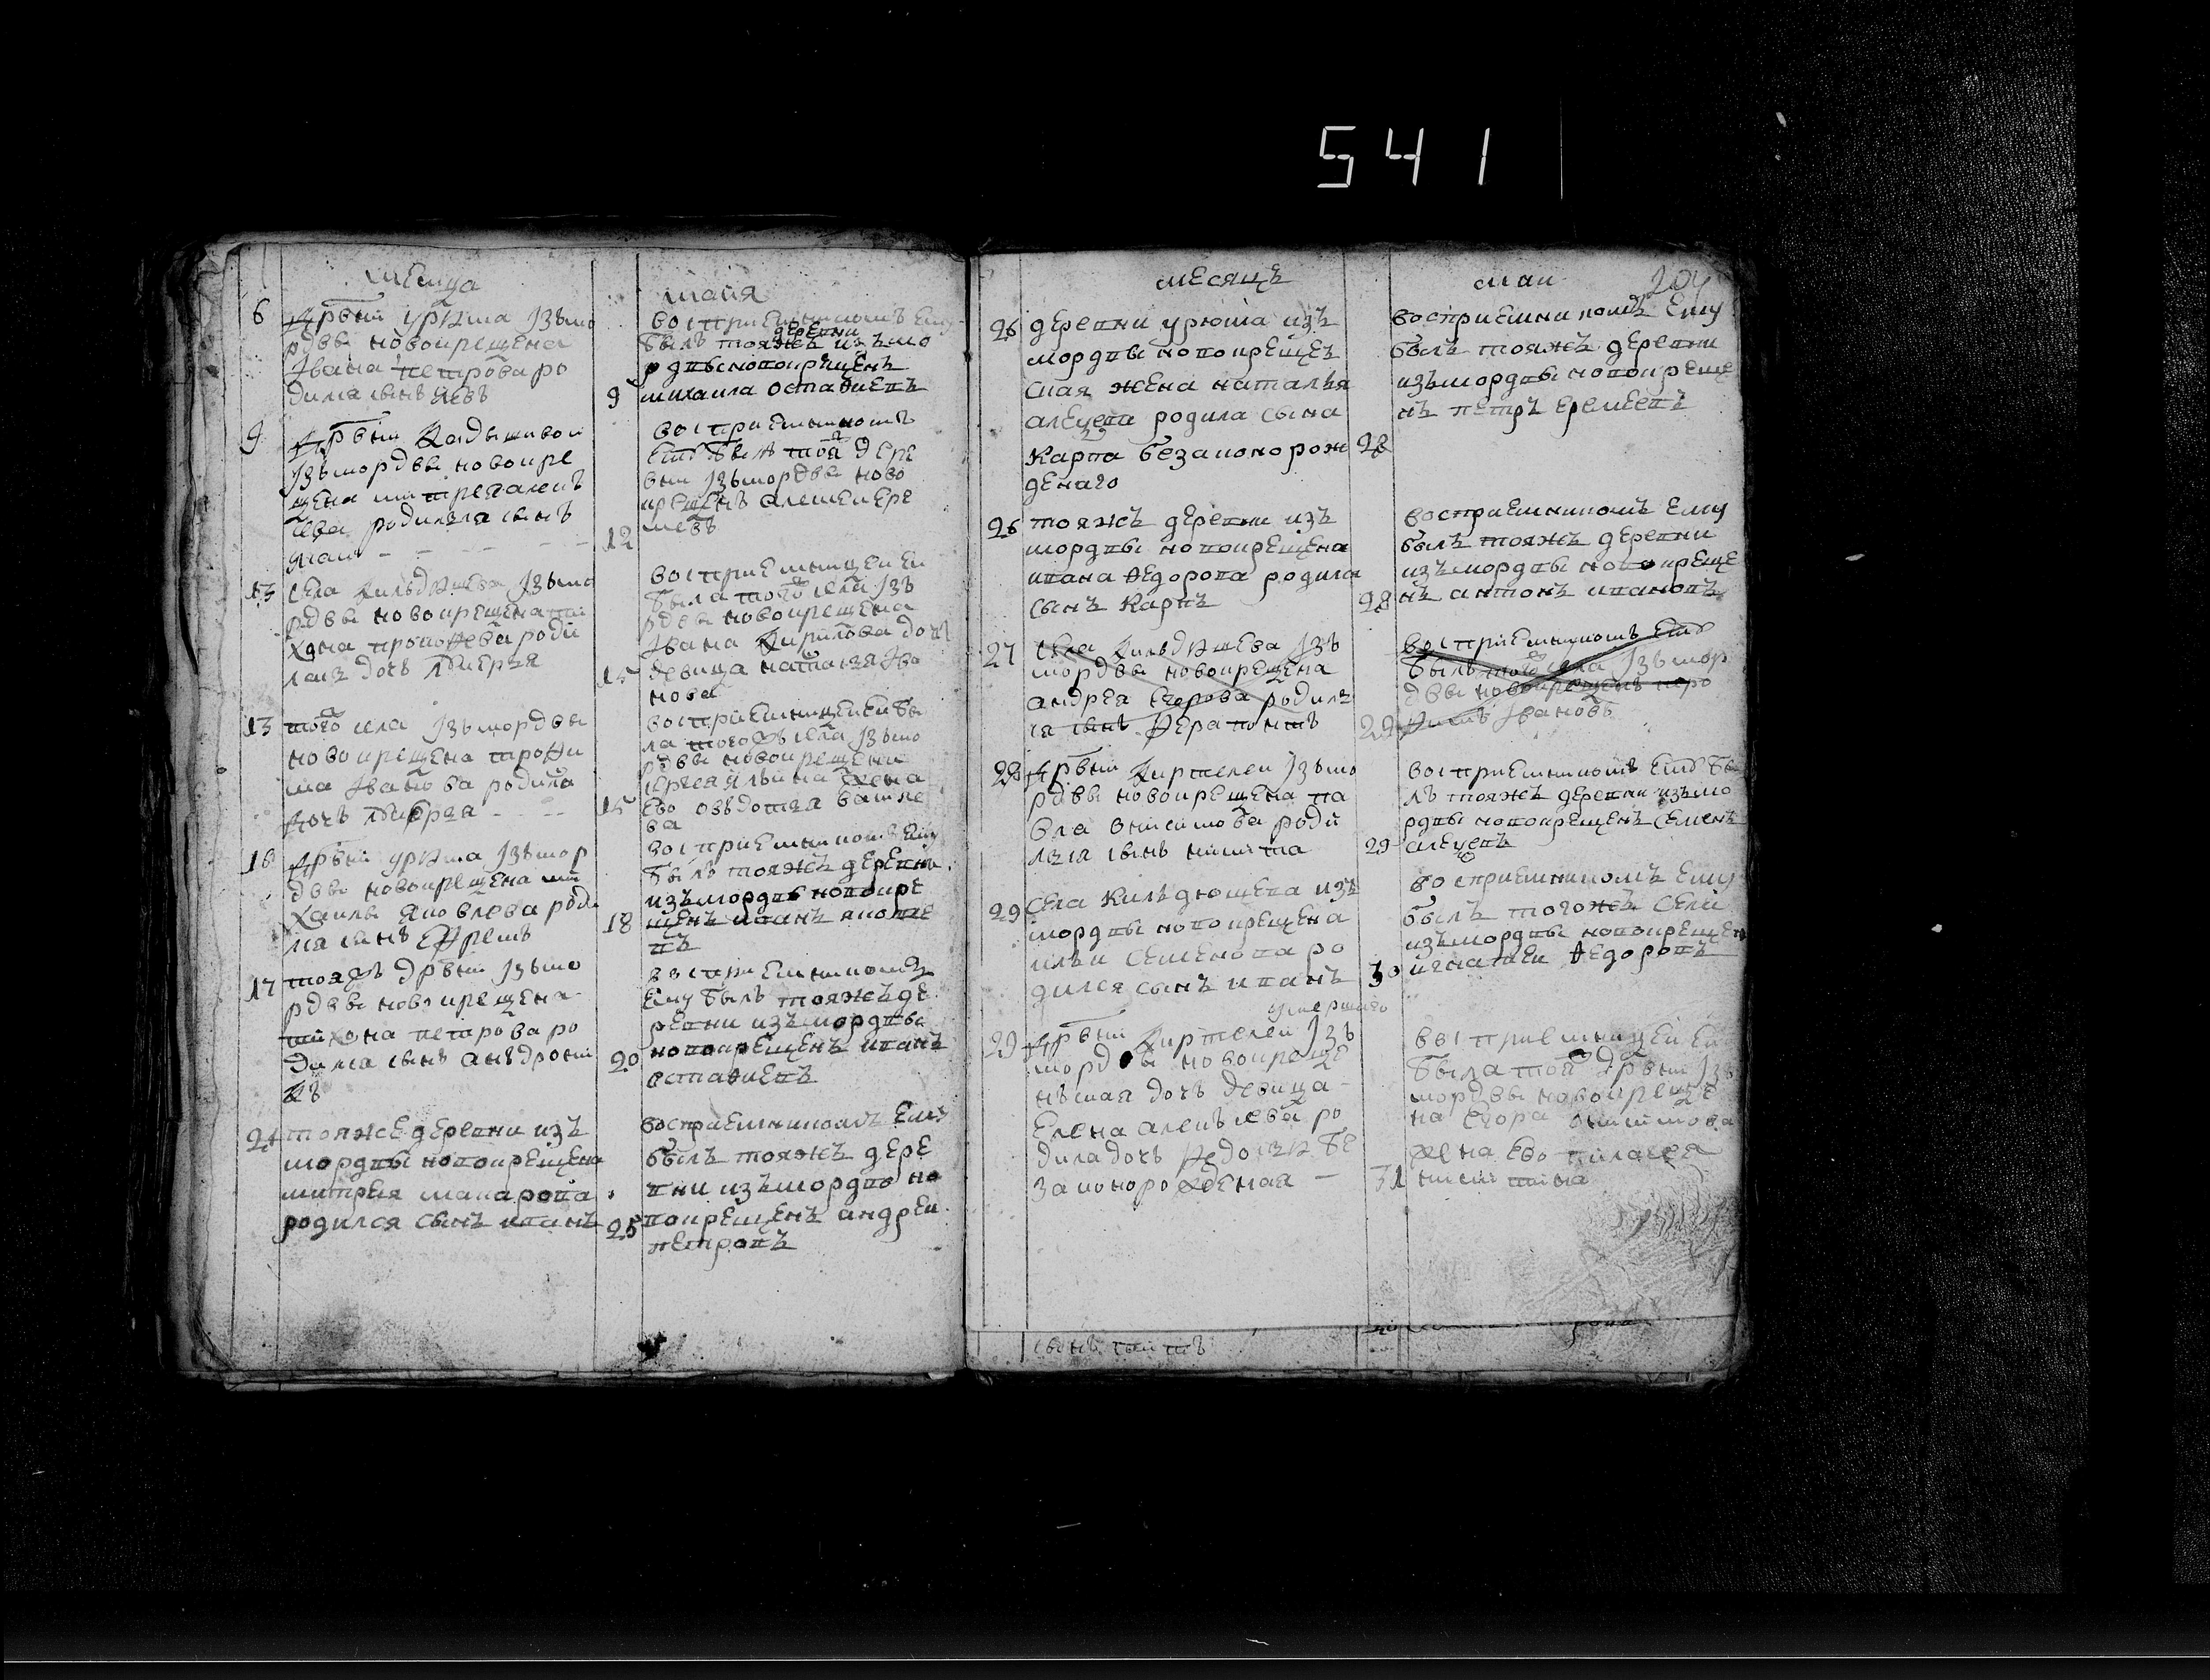 541
месяца
майя
6
дрвни урюма Iзъмо
рдвы новокрещена
Iвана петрова ро
дился сынъ
восприемникомъ ему
былъ тояжъ деревни изъмо
рдвы новокрещенъ
9
михаила остафиевъ
9
дрвни Кадышевои
Iзъмордвы новокре
щена митрея алеѯ
ева родился сынъ
восприемникомъ
ему былъ тоя дере
вни Iзъмордвы ново
крещенъ алеѯеи ере
12
мевъ
13
села Кильдюшева Iзъмо
рдвы новокрещена ти
хона прокофева роди
лась дочь
восприемницеи еи
была того села Iзъ
рдвы новокрещена
Iвана Кирилова дочь
15
девица наталья Iва
нова
13
того села Iзъмордвы
новокрещена трофи
ма Iванова родила
дочь
восприемницеи еи бы
ла тогожъ села Iзъмо
рдвы новокрещена
сергея ильина жена
15
ево овдотья василе
ва
16
дрвни урюма Iзъмор
двы новокрещена ми
хаилы яковлева роди
лся сынъ ефремъ
восприемникомъ ему
былъ тояжъ деревни
изъмордвы новокре
18
щенъ иванъ яковле
въ
17
тояжъ дрвни Iзъмо
рдвы новокрещена
тихона петрова ро
дился сынъ анъдрони
къ
восприемникомъ
ему былъ тояжъ де
ревни изъмордвы
20
новокрещенъ иванъ
остафиевъ
24
тояже деревни изъ
мордвы новокрещена
митрея макарова
родился сынъ иванъ
восприемникомъ ему
былъ тояжъ дере
вни изъмордвы но
25
вокрещенъ андреи
петровъ
месяцъ
маи
204
26
деревни урюма изъ
мордвы новокрещен
ская жена наталья
алеѯева родила сына
карпа безаконорож
денаго
восприемникомъ ему
былъ тояжъ деревни
изъмордвы новокреще
нъ петръ еремеевъ
28
26
тояжъ деревни изъ
мордвы новокрещена
ивана федорова родился
сынъ карпъ
восприемникомъ ему
былъ тояжъ деревни
изъмордвы новокреще
28
нъ антонъ ивановъ
27
села Кильдюшева Iзъ
мордвы новокрещена
андрея егорова родил
ся сынъ ферапонтъ
восприемникомъ ему
былъ того села Iзъмор
двы новокрещенъ
29
Iвановъ
28
дрвни Киртелеи Iзъмо
рдвы новокрещена па
вла онисимова роди
лся сынъ никита
восприемникомъ ему бы
лъ тояжъ деревни изъмо
рдвы новокрещенъ семенъ
29
алеѯевъ
29
села кильдюшева изъ
мордвы новокрещена
ильи семенова ро
дился сынъ иванъ
восприемникомъ ему
былъ тогожъ села
изъмордвы новокрещенъ
30
игнатеи федоровъ
умершаго
29
дрвни Киртелеи Iзъ
мордвы новокреще
нъская дочь девица
елена алеѯева ро
дила дочь федосью бе
законорожденая
восприемницеи еи
была тоя дрвни Iзъ
мордвы новокреще
на егора онисимова
жена ево пилагея
31
никитина
сынъ титъ